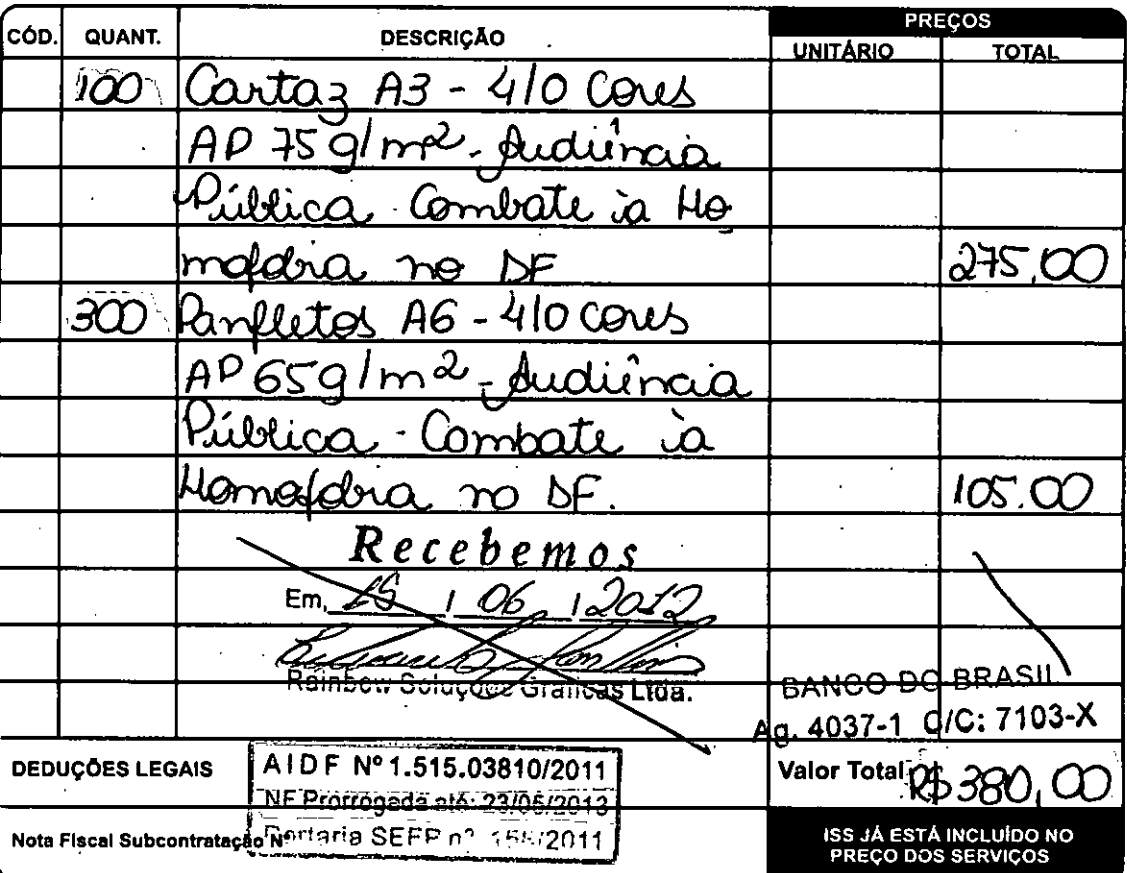 CÓD. QUANT. DESCRIÇÃO PREÇOS
UNITÁRIO TOTAL
100 Cartaz A3 - 4/0 Cores
AP 75 g/m² - Audiência
Pública Combate à Ho
mofobia no DF 275,00
300 Panfletos A6 - 4/0 cores
AP 65 g/m² - Audiência
Pública - Combate à
Homofobia no DF. 105.00
Recebemos
Em, / 06 / 2012
Rainbow Soluções Gráficas Ltda.
BANCO DO BRASIL
Ag. 4037-1 C/C: 7103-X
DEDUÇÕES LEGAIS
AIDF Nº 1.515.03810/2011
NF Prorrogada até: 23/05/2013
Portaria SEFP nº 155/2011
Valor Total R$ 380,00
Nota Fiscal Subcontratação N
ISS JÁ ESTÁ INCLUÍDO NO
PREÇO DOS SERVIÇOS